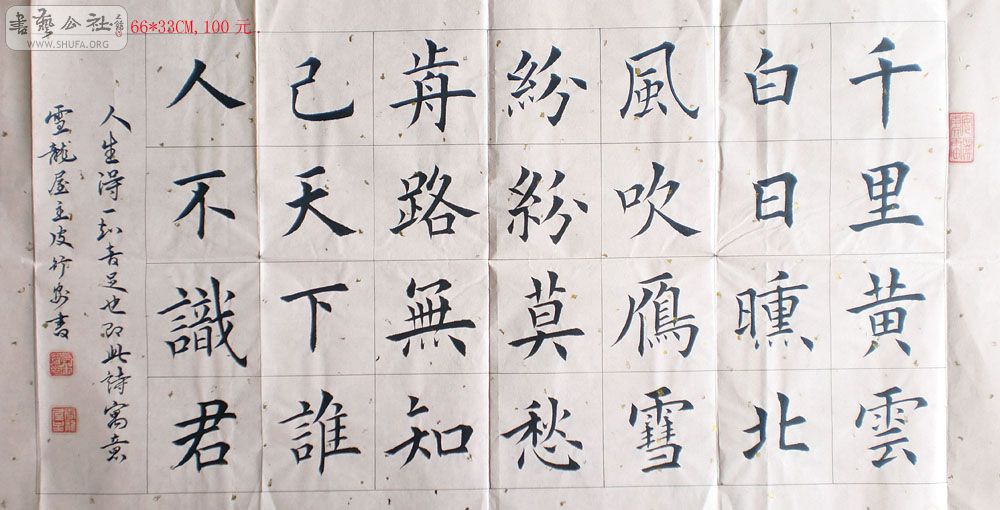 書藝公社
WWW.SHUFA.ORG
66*33CM,100元.
千里黄雲
白日曛北
風吹鴈雪
紛紛莫愁
歬路無知
己天下誰
人不識君
人生得一知音足也即此詩寓意
雪龍屋主皮竹书